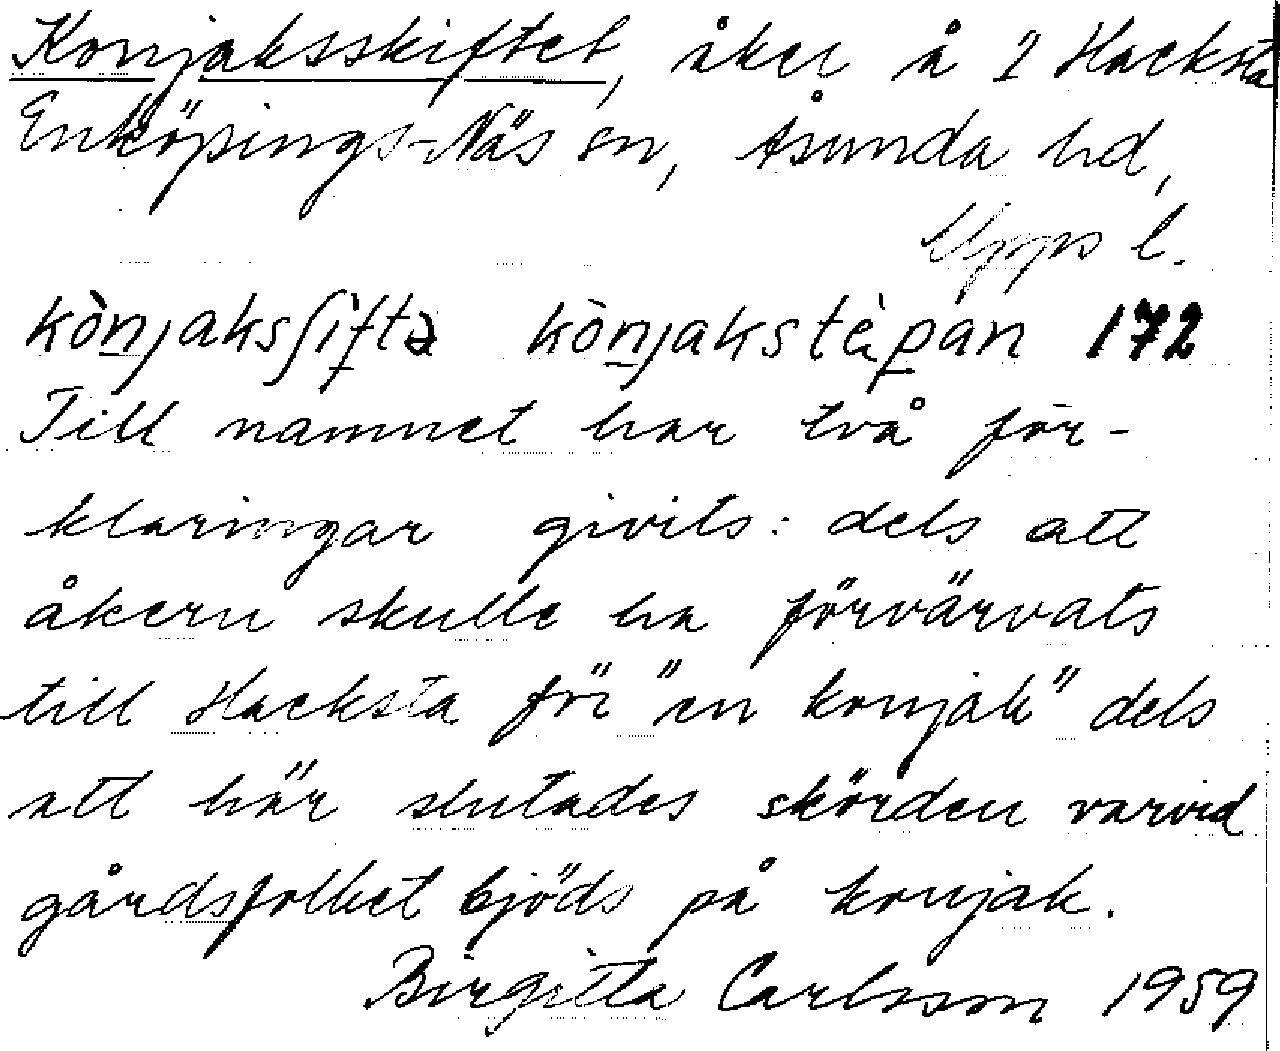 Konjaksskiftet, åker å 2 Hacksta
Enköpings-Näs sn, Åsunda hd,
Upps l.
kòn̲jaksʃìf̲tə kòn̲jakstèp̲an 172
Till namnet har två för-
klaringar givits: dels att
åkern skulle ha förvärvats
till Hacksta för "en konjak" dels
att här slutades skörden varvid
gårdsfolket bjöds på konjak.
Birgitta Carlsson 1959